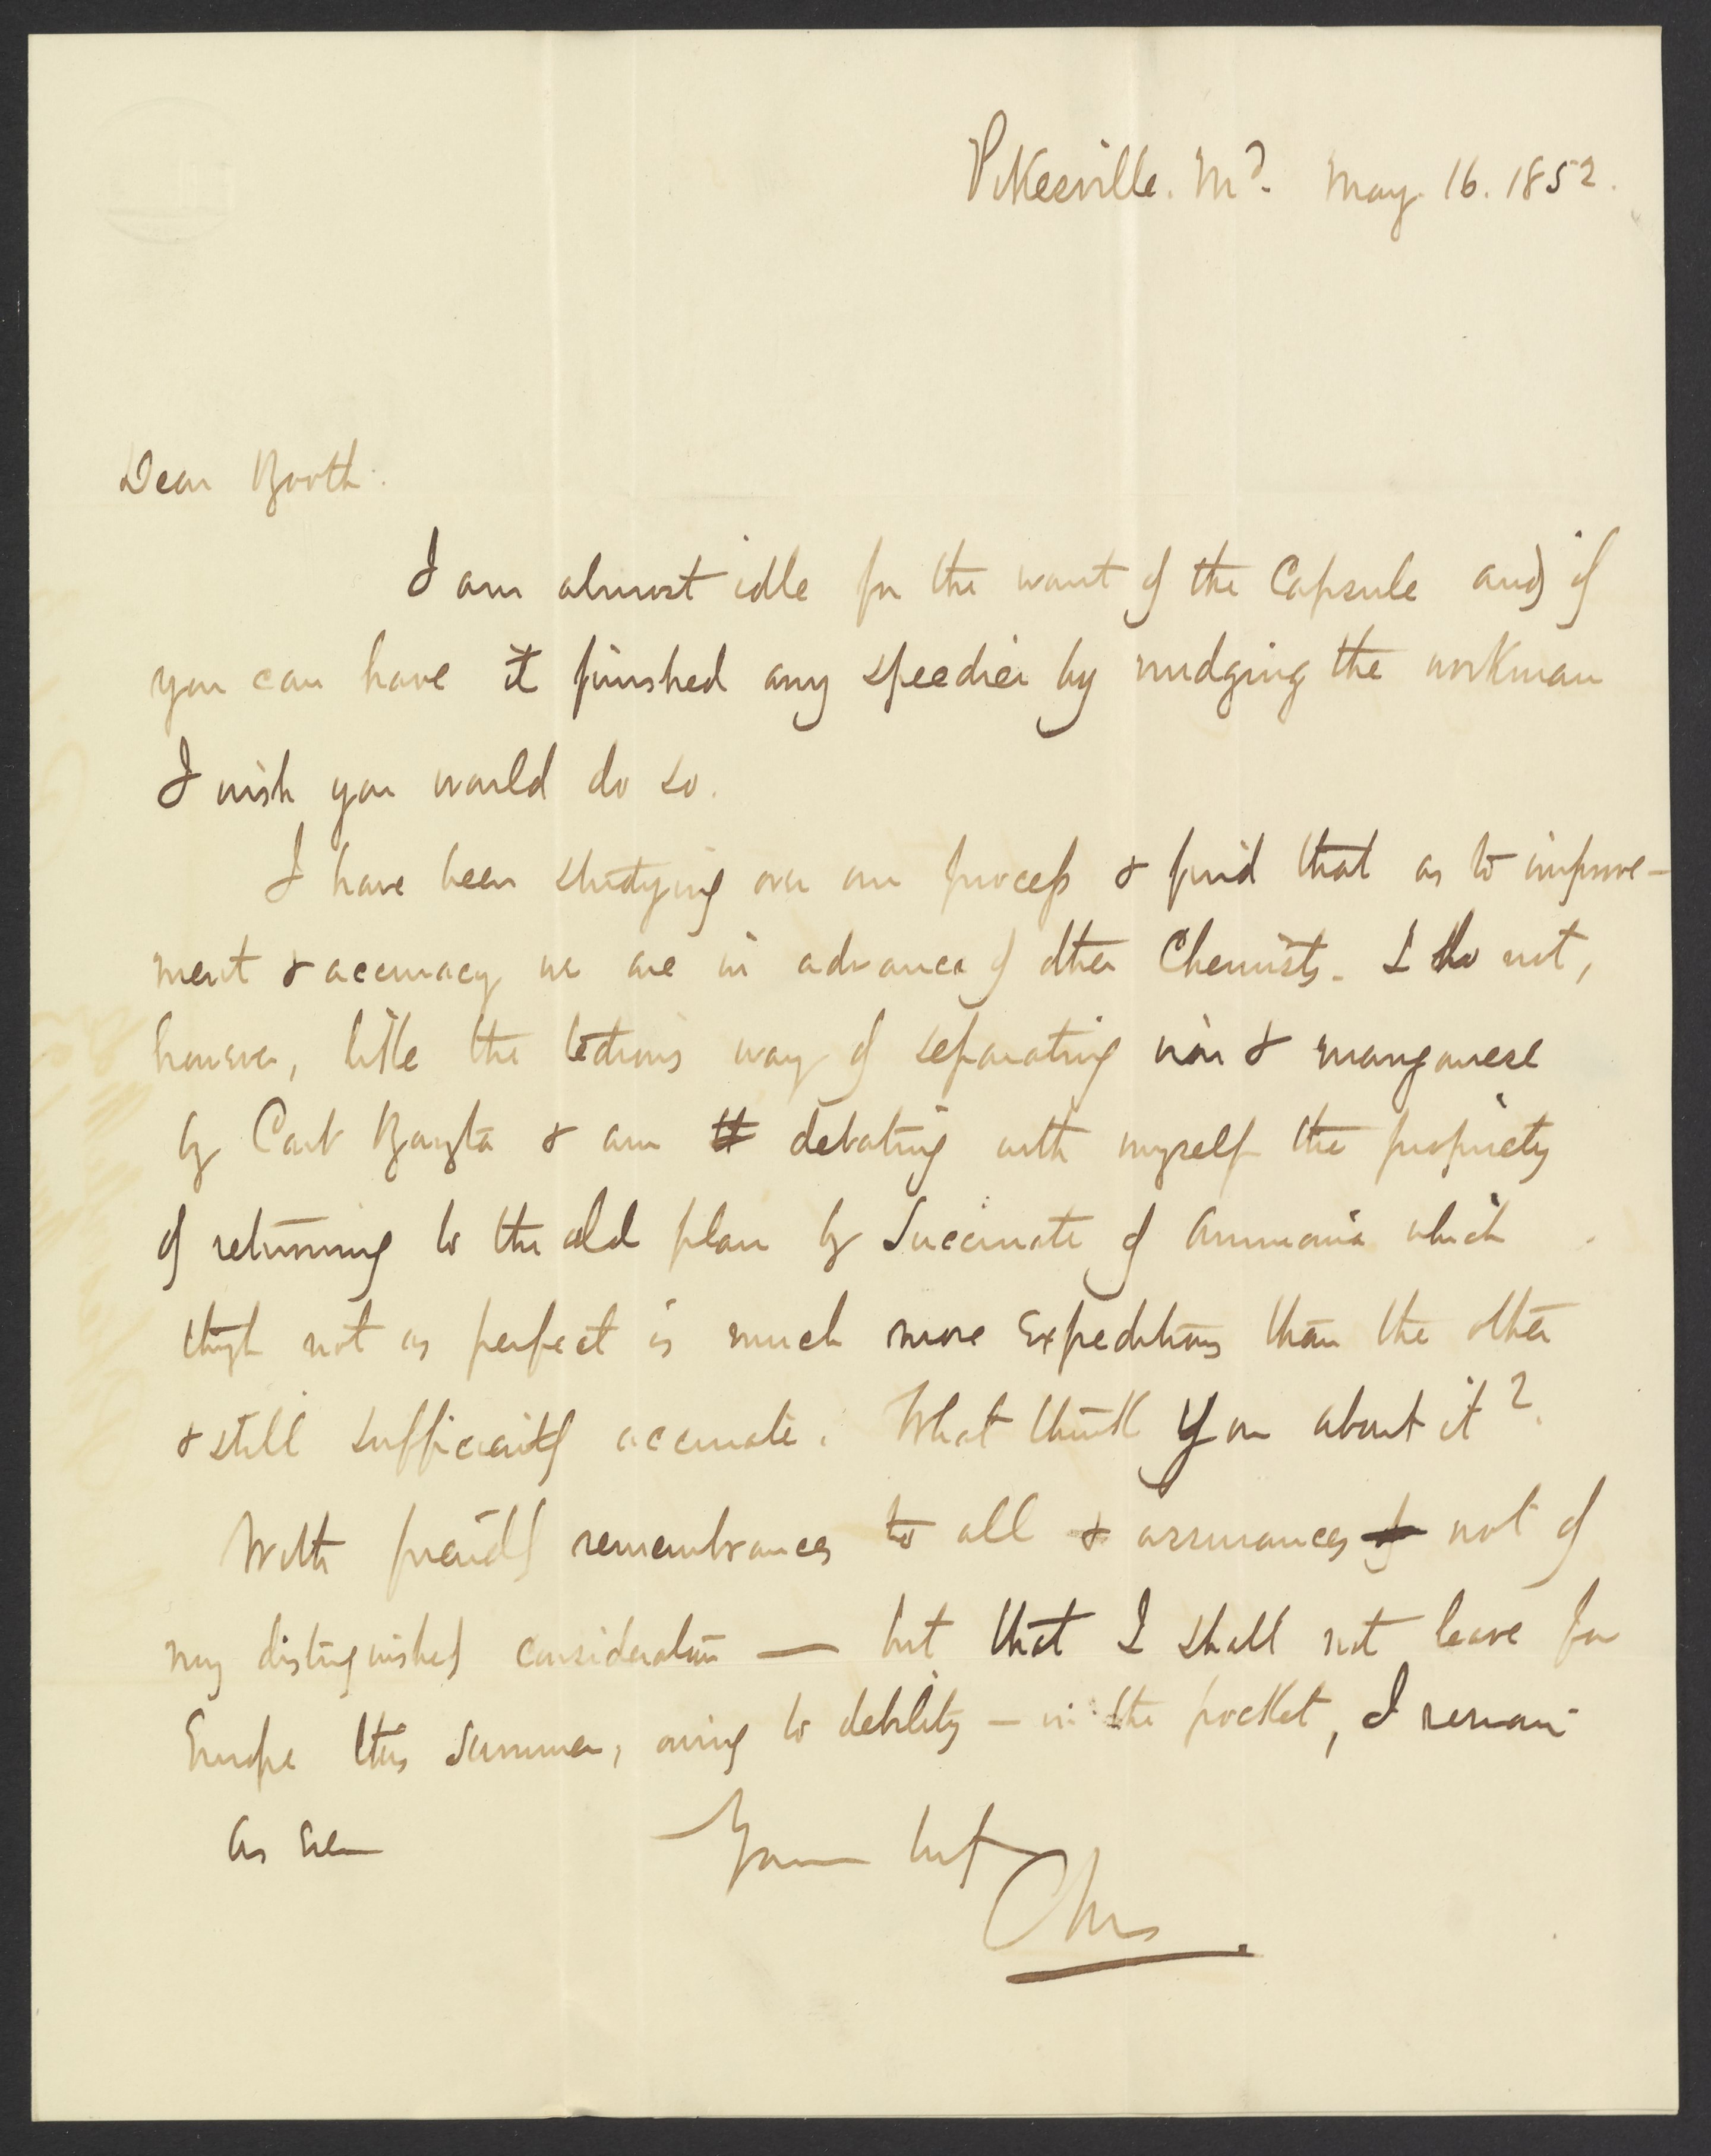 Pikesville. Md. May. 16. 1852.
Dear Booth.
I am almost idle for the want of the Capsule and if
you can have it finished any speedier by nudging the workman
I wish you would do so.
I have been studying over our process & find that as to improve-
ment & accuracy we are in advance of other Chemists. I do not,
however, like the tedious way of separating iron & manganese
by Carb Baryta & am debating with myself the propriety
of returning to the old plan by Succinate of Ammonia which
though not as perfect is much more Expeditious than the other
& still sufficiently accurate. What think you about it?
With friendly remembrances to all & assurances not of
my distinguished consideration — but that I shall not leave for
Europe this Summer, owing to debility — in the pocket, I remain
as ever Yours